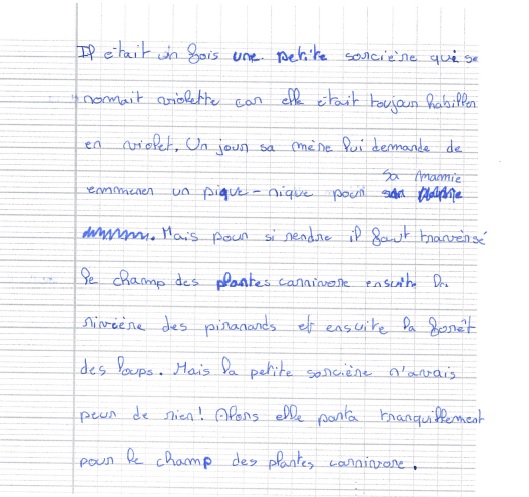 Il était un fois une petite sorcière qui se
nomait violette car elle était toujour habiller
en violet. Un jour sa mère lui demande de
emmmener un pique-nique pour
sa mamie
Mais pour si rendre il faut traversé
le champ des plantes carnivore ensuite la
rivière des piranards et ensuite la forêt
des loups. Mais la petite sorcière n'avais
peur de rien! Alors elle parta tranquillement
pour le champ des plantes carnivore.